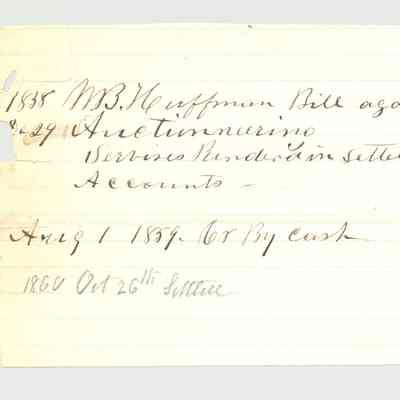 1858 W B. Huffman Bill aga
29 Auctionneering
Servises Renderd in settle
Accounts -
Aug 1 1859. Cr By cash
1860 Oct 26th Settled